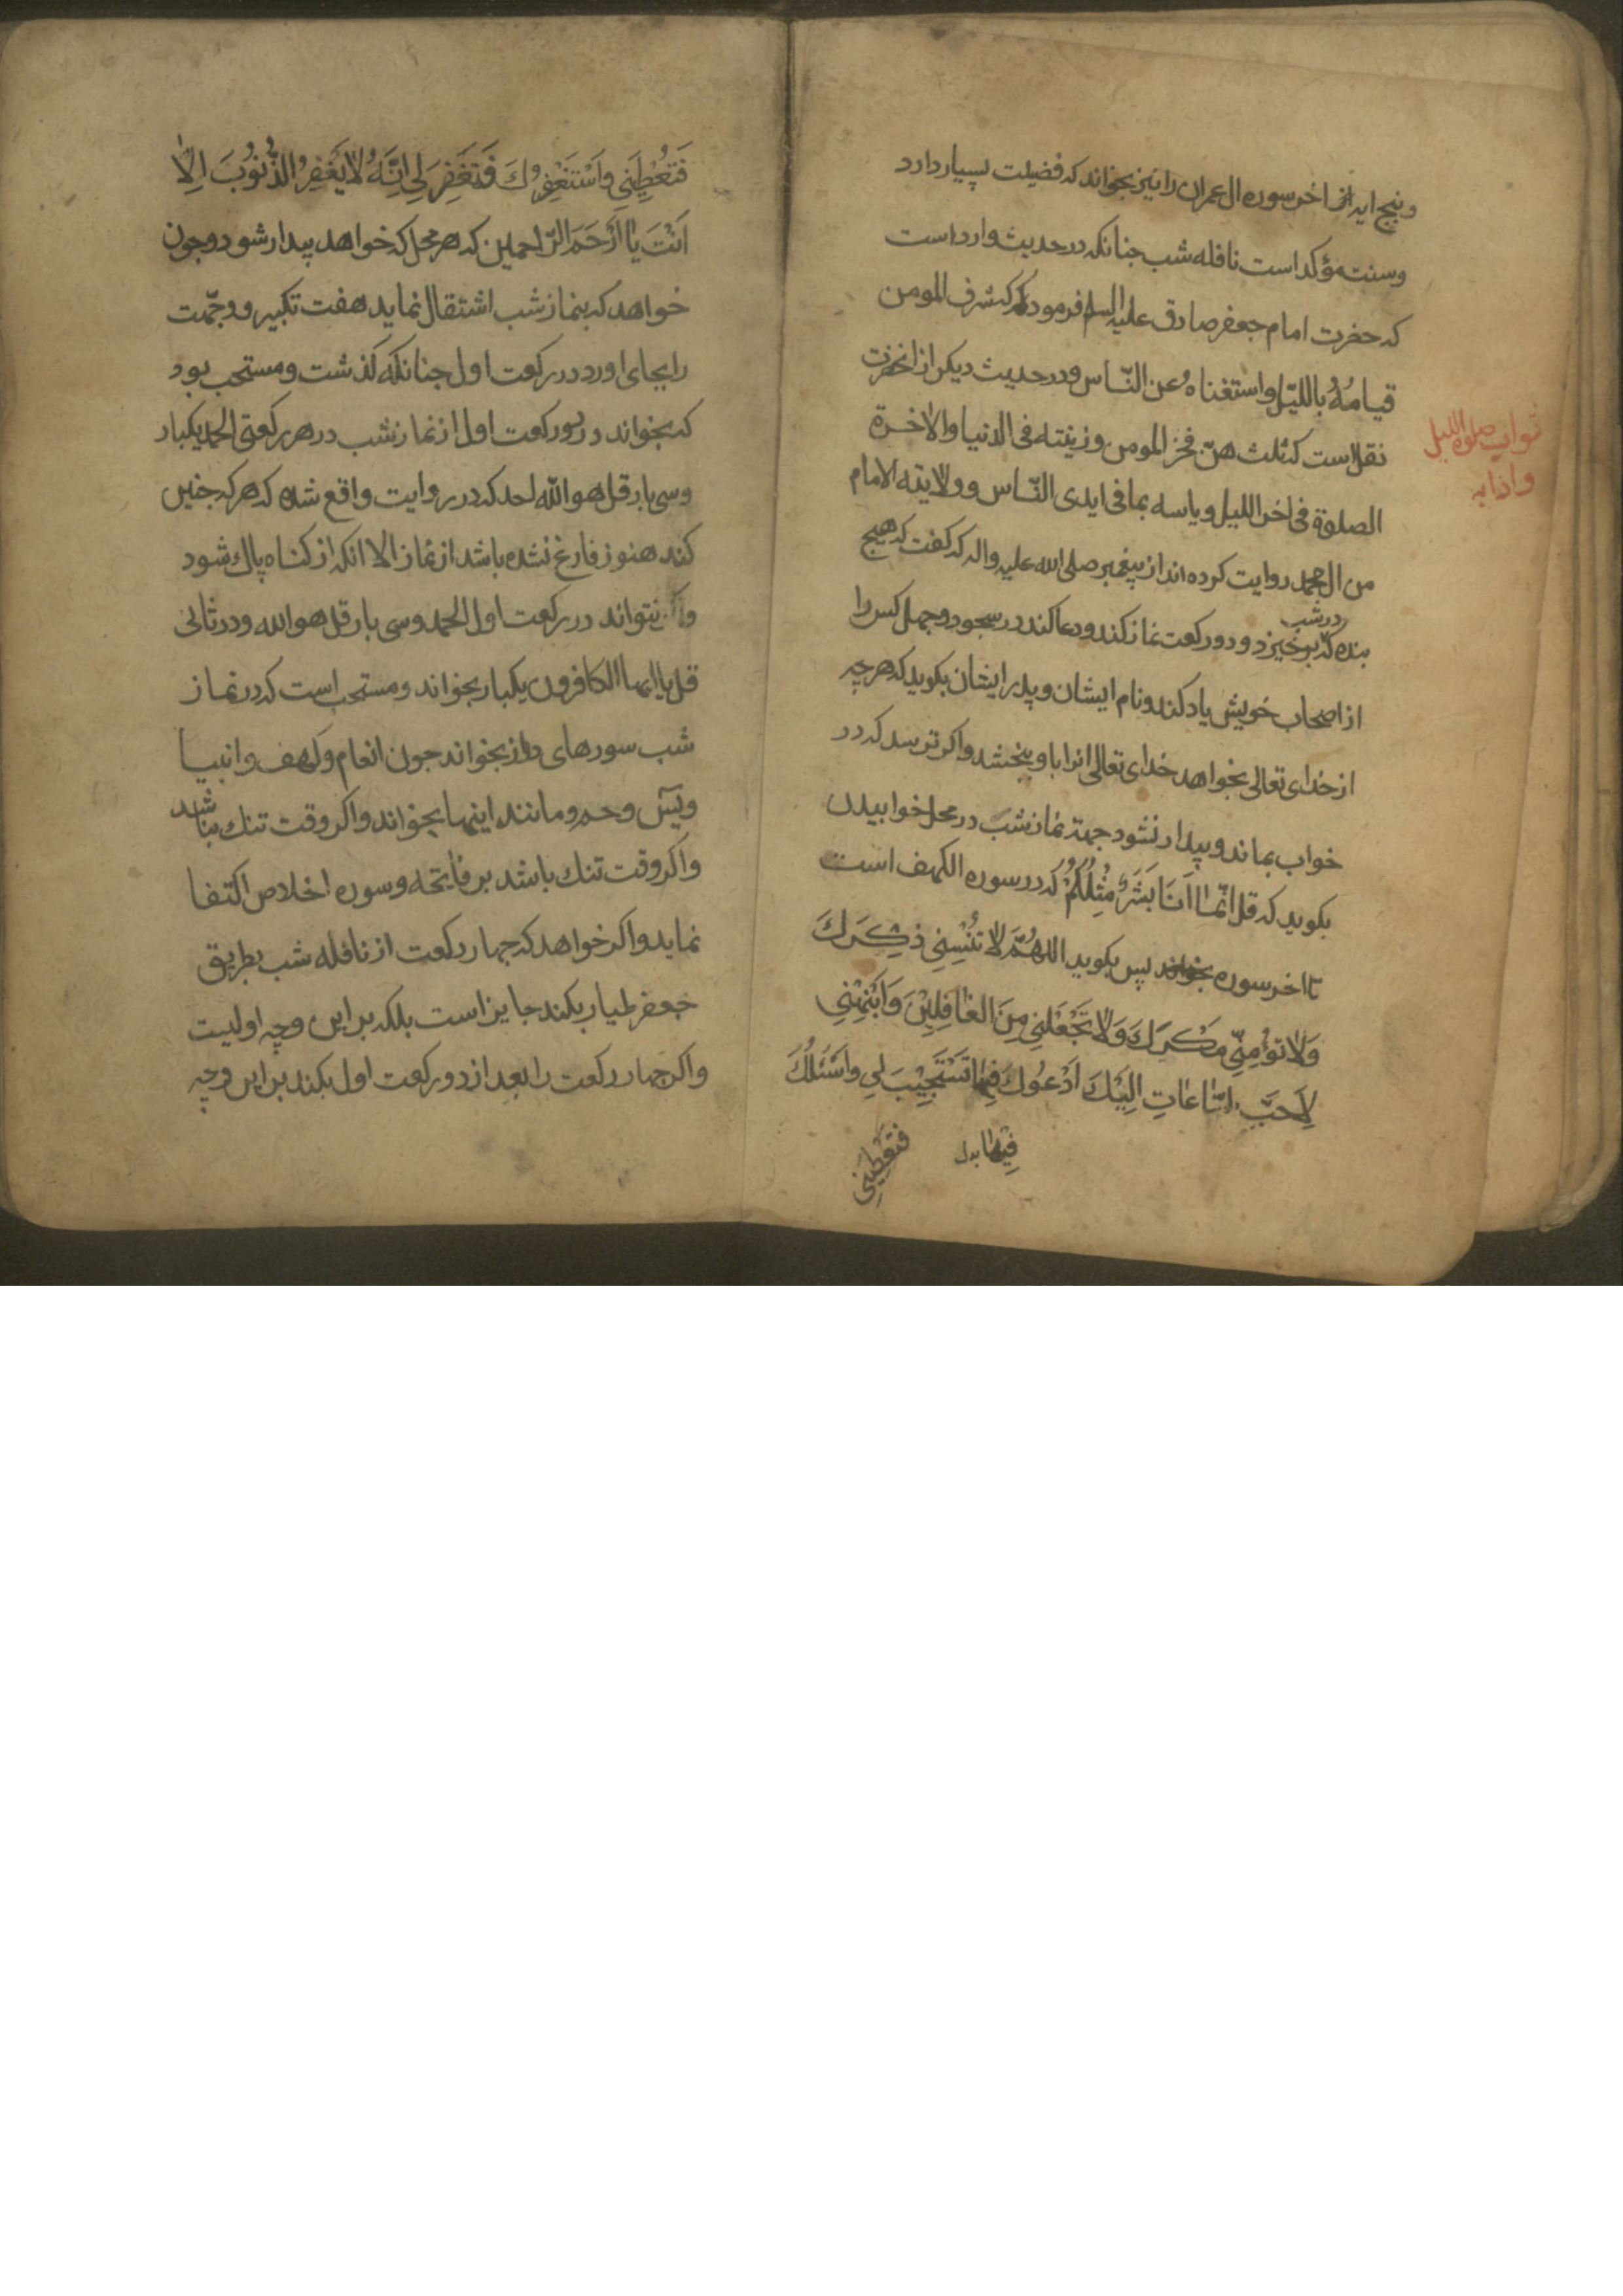 وپنج ایه از اخر سوره ال عمران را نیز بخواند که فضیلت بسیار دارد
وسنت مؤکد است نافله شب جنانکه در حدیث وارد است
که حضرت امام جعفر صادق علیه السلم فرموده که شرف المومن
قیامُهُ باللیّل واستغناهُ عن النّاس ودر حدیث دیکر از انحضرت
نقل است که ثلث هنّ فخر المومن وزینته فی الدنیا والاخرة
الصلوة فی اخر اللیل ویاسه بما فی ایدی النّاس وولایته الامام
من ال محمد روایت کرده اند از پیغمبر صلی الله علیه واله که کفت که هیچ
بنده که در شب برخیزد ودو رکعت نماز کند ودعا کند در سجود وجهل کس را
از اصحاب خویش یاد کند ونام ایشان وپدر ایشان بکوید که هرچه
از خدای تعالی بخواهد خدای تعالی انرا باو بخشد واکر ترسد که در
خواب بماند وبیدار نشود جهة نماز شب در محل خوابیدن
بکوید که قل انّما اَنَا بَشَرٌ مِثْلُکُمْ که در سوره الکهف است
تا اخر سوره بخواند پس بکوید اللهُمَّ لا تُنْسِنِی ذِکْرَكَ
وَلاٰ تؤْمِنّی مَکْرَكَ وَلاٰ تَجْعَلنِی مِنَ الغافِلِیْنَ وَاَنْبِهْنِی
لِاَحَبِّ السّاعاتِ اِلَیْكَ اَدْعُوكَ فِیها فَتَسْتَجِیْبَ لِی واَسْئَلُكَ
فِیْهٰا بدل
فتعْطِیَنِی
ثواب صلوة اللیل
وادابه
فَتُعْطِیَنِی وَاَسْتَغْفِرُكَ فَتَغْفِرَ لِی اِنَّهُ لاٰ یَغْفِرُ الذُّنُوُبَ اِلاّٰ
اَنْتَ یٰا اَرْحَمَ الرّاحمین که هر محل که خواهد بیدار شود وجون
خواهد که بنماز شب اشتقال نماید هفت تکبیر ووجّهت
را بجای اورد در رکعت اول جنانکه کذشت ومستحب بود
که بخواند در دو رکعت اول از نماز شب در هر رکعتی الحمد یکبار
وسی بار قل هو الله احد که در روایت واقع شده که هر که جنین
کند هنوز فارغ نشده باشد از نماز الا انکه از کناه پاك شود
واکر نتواند در رکعت اول الحمد وسی بار قل هو الله ودر ثانی
قل یا ایها الکافرون یکبار بخواند ومستحب است که در نماز
شب سورهای دراز بخواند جون انعام وکهف وانبیا
ویسٓ وحم ومانند اینها بخواند واکر وقت تنك نباشد
واکر وقت تنك باشد بر فاتحه وسوره اخلاص اکتفا
نماید واکر خواهد که جهار رکعت از نافله شب بطریق
جعفر طیار بکند جایز است بلکه بر این وجه اولیست
واکر جهار رکعت را بعد از دو رکعت اول بکند بر این وجه